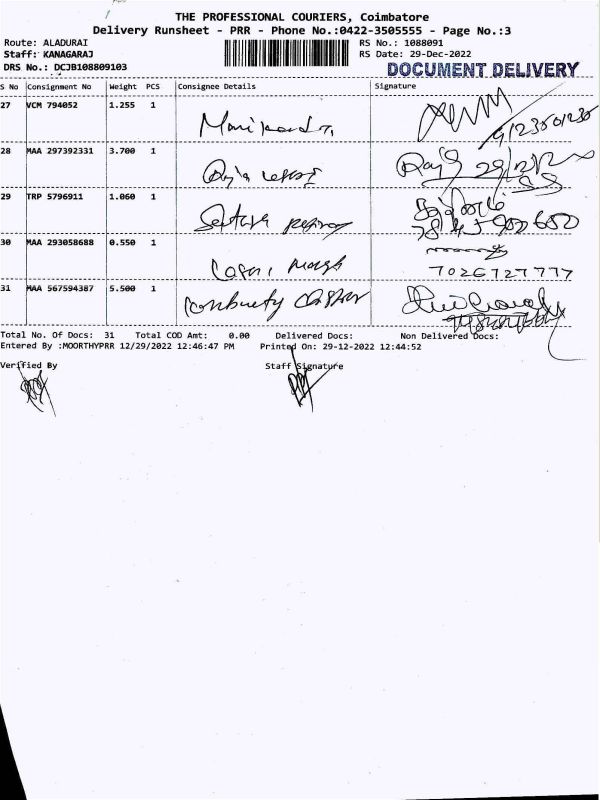 THE PROFESSIONAL COURIERS, Coimbatore
Delivery Runsheet - PRR - Phone No.:0422-3505555 - Page No.:3
Route: ALADURAI RS No.: 1088091
Staff: KANAGARAJ RS Date: 29-Dec-2022
DRS No.: DCJB108809103 DOCUMENT DELIVERY
S No Consignment No Weight PCS Consignee Details Signature
27 VCM 794052 1.255 1
28 MAA 297392331 3.700 1
29 TRP 5796911 1.060 1
30 MAA 293058688 0.550 1
7026727777
31 MAA 567594387 5.500 1
Total No. Of Docs: 31 Total COD Amt: 0.00 Delivered Docs: Non Delivered Docs:
Entered By :MOORTHYPRR 12/29/2022 12:46:47 PM Printed On: 29-12-2022 12:44:52
Verified By Staff Signature